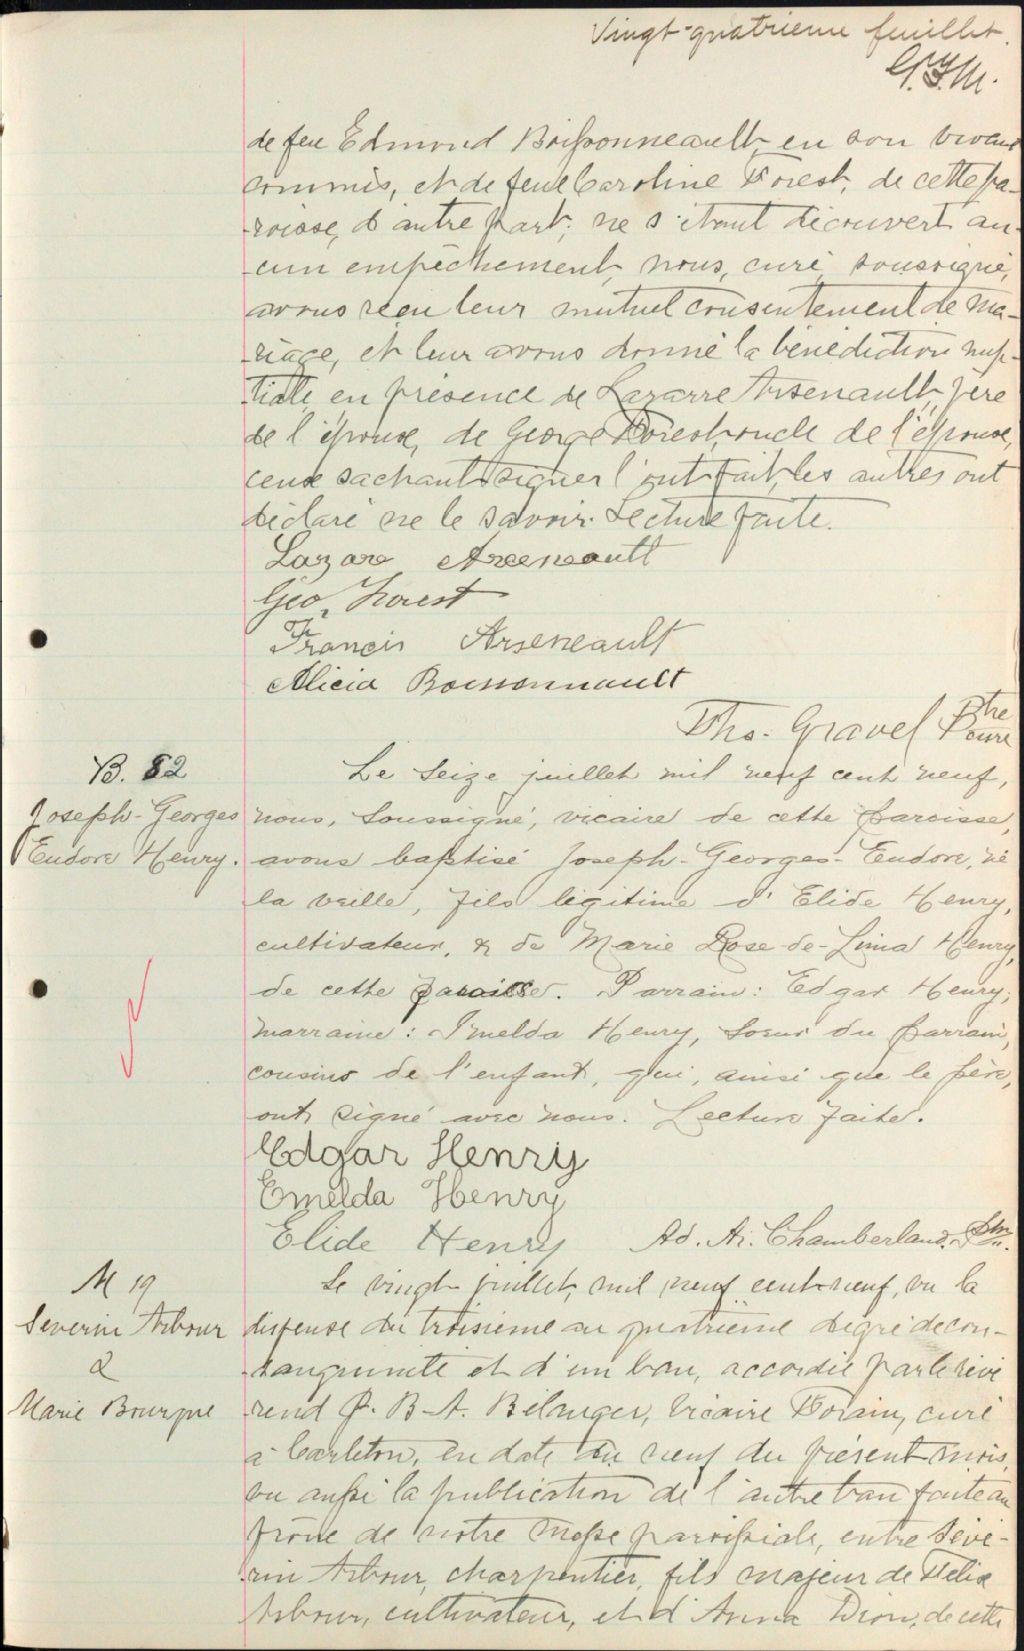 Vingt-quatrième feuillet.
de feu Edmond Boissonneault, en son vivant
commis, et de feue Caroline Forest, de cette pa-
roisse, d'autre part; ne s'étant découvert au-
cun empêchement, nous, curé soussigné,
avons reçu leur mutuel consentement de ma-
riage, et leur avons donné la bénédiction nup-
tiale en présence de Lazarre Arsenault, père
de l'épouse, de George Forest, oncle de l'épouse,
ceux sachant signer l'ont fait, les autres ont
déclaré ne le savoir. Lecture faite.
Lazare Arseneault
Geo. Forest
Francis Arseneault
Alicia Boissonnault
Ths. Gravel Ptre
Curé
B. 82
Joseph-Georges
Eudore Henry.
Le seize juillet mil neuf cent neuf,
nous, soussigné, vicaire de cette paroisse,
avons baptisé Joseph-Georges-Eudore, né
la veille, fils légitime d'Elide Henry,
cultivateur, & de Marie Rose-de-Lima Henry,
de cette paroisse. Parrain: Edgar Henry;
marraine: Imelda Henry, soeur du parrain,
cousins de l'enfant, qui, ainsi que le père,
ont signé avec nous. Lecture faite.
Edgar Henry
Emelda Henry
Elide Henry Ad. Ai. Chamberland, Ptre.
M 19
Severin Arbour
&
Marie Bourque
Le vingt juillet, mil neuf cent neuf, vu la
dispense du troisième au quatrième degré de con-
sanguinité et d'un ban, accordée par le révé
rend P. B-A. Bélanger, Vicaire Forain, curé
à Carleton, en date du neuf du présent mois,
vu aussi la publication de l'autre ban faite au
prône de notre messe paroissiale, entre Sévé-
rin Arbour, charpentier, fils majeur de Félix
Arbour, cultivateur, et d'Anna Dion, de cette